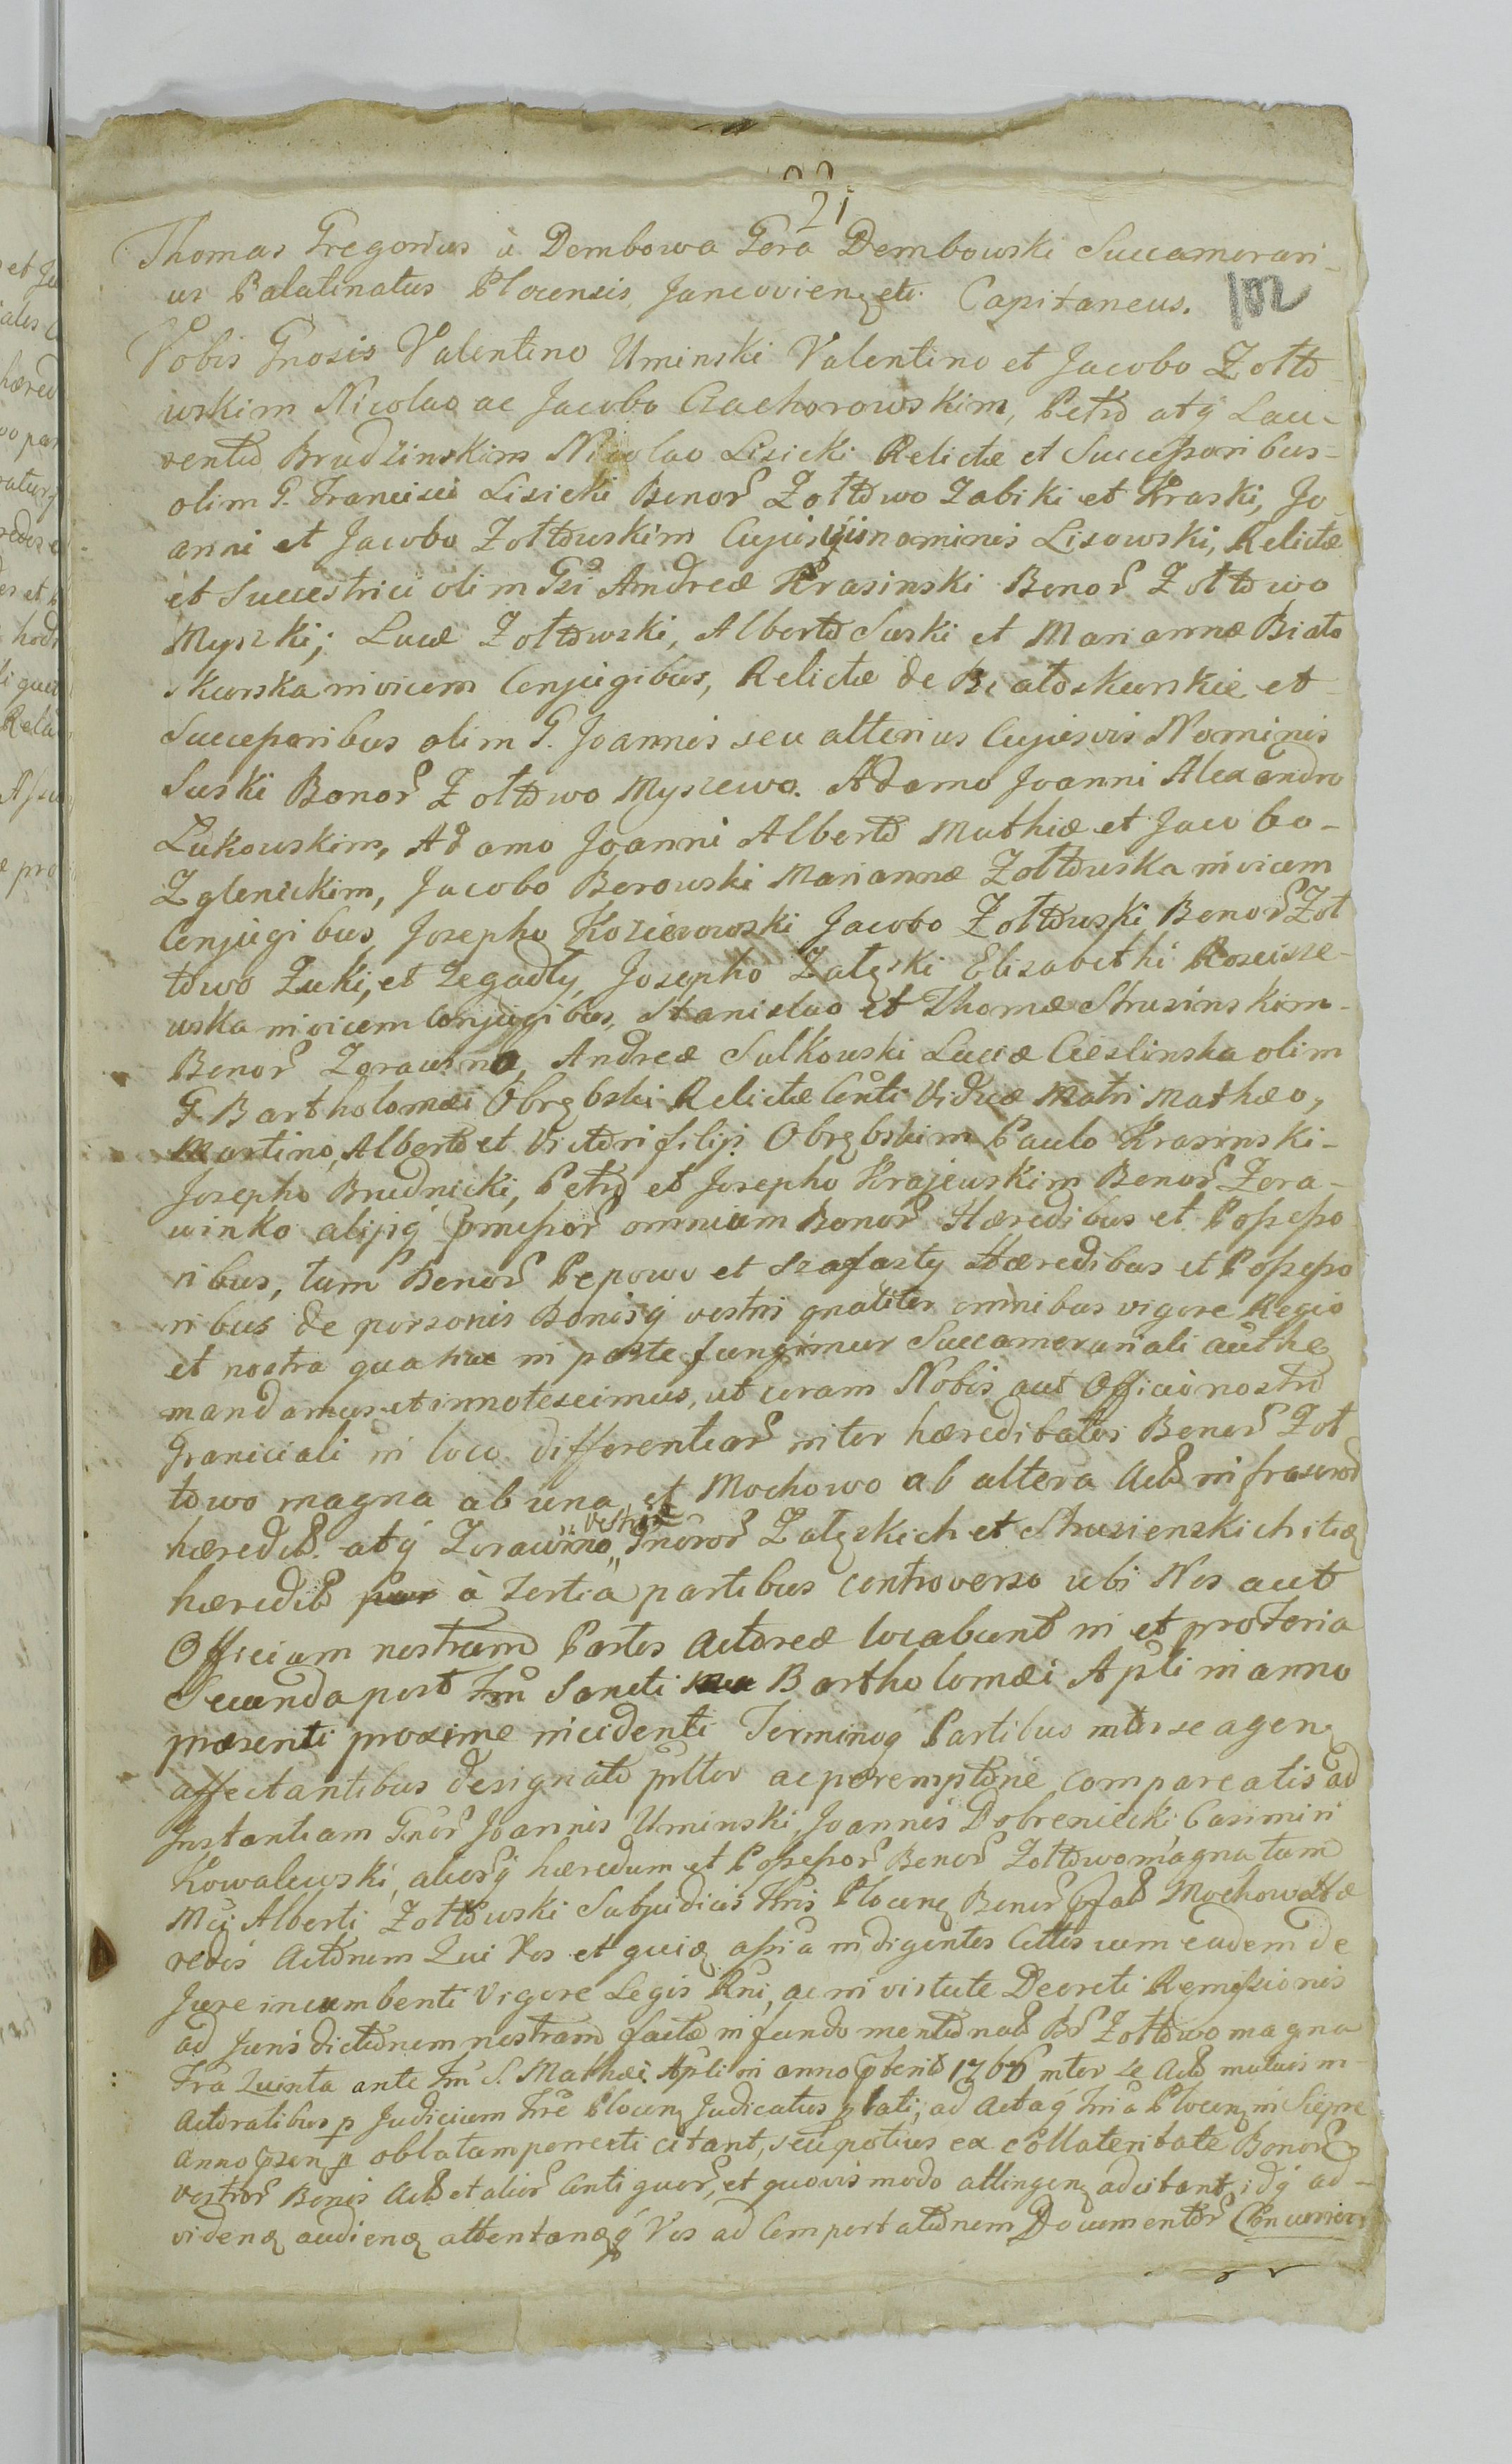 21
102
Thomas Gregorius à Dembowa Gora Dembowski Succamerari-
us Palatinatus Plocensis, Janoviens etc. Capitaneus.
Vobis Gnosis Valentino Uminski Valentino et Jacobo Żołto
wskim Nicolao ac Jacobo Czachorowskim, Petro atq Lau-
rentio Brudzinskim Nicolao Lisicki Relictæ et Successoribus
olim G. Francisci Lisicki Bonor Żołtowo Zabiki et Kraski, Jo
anni et Jacobo Żołtowskim Cujusvis nominis Lisowski, Relictæ
et Succestrici olim Gsi Andreæ Krasinski Bonor Żołtowo
Myszki; Lucæ Żołtowski, Alberto Suski et Mariannæ Biało
skurska invicem Conjugibus, Relictæ de Białoskurskie et
Successoribus olim G. Joannis seu alterius Cujusvis Nominis
Suski Bonor Żołtowo Myszewo. Adamo Joanni Alexandro
Lukowskim, Adamo Joanni Alberto Mathiæ et Jacobo-
Zglenickim, Jacobo Borowski Mariannæ Żołtowska invicem
Conjugibus, Josepho Kozierowski Jacobo Żołtowski Bonor Żoł
towo Zuki, et Zegadły, Josepho Załęski Elisabethi Koscisze-
wska invicem Conjugibus, Stanislao et Thomæ Strusinskim-
Bonor Zorawino, Andreæ Sulkowski Luciæ Cieslinska olim
G. Bartholomæi Obrębski Relictæ Conti Viduæ Matri Mathæo,
Martino, Alberto et Victori filijs Obrębskim Paulo Krasinski-
Josepho Brudnicki, Petro et Josepho Krajewskim Bonor Zora-
winko alijsq omnium Bonor Hæredibus et Possesso
ribus, tum Bonor Pepowo et Szafarty Hæredibus et Possesso
ribus de personis Bonisq vestri gnaliter omnibus vigore Regio
et nostra qua hac in parte fungimur Succamerariali authe
mandamus et innotescimus, ut coram Nobis aut Officio nostro
Graniciali in loco differentiar inter hæreditates Bonor Żoł
towo magna ab una, et Mochowo ab altera Act infrascrod
hæredit. atq Zorawino vestrae Gneror Załęskich et Strusienskich itiq
hæredit à tertia partibus controverso ubi Nos aut
Officium nostrum Partes Actoreæ locabunt in et pro Feria
Secunda post Fm Sancti Bartholomæi Apli in anno
præsenti proxime incidenti Terminoq Partibus inter se agen
affectantibus designato plter ac peremptorie compareatis ad
Instantiam Gner Joannis Uminski, Joannis Dobrenicki, Casimiri
Kowalewski, aliorq hæredum et Possessor Bonor Żołtowo magna tum
Mci Alberti Żołtowski Subjudicis Tris Plocens Bonor Mochowo Hæ
redis Actorum Qui Vos et quia indigentes Cittis cum eadem de
Jure incumbenti Vigore Legis Rni, ac in virtute Decreti Remissionis
ad Jurisdictionem nostram factæ in fundo mentionat Br Żołtowo magna
Fra Quinta ante Fm S. Mathæi Apli in anno 1766 inter se Act mutuis in
Actoratibus p Judicium Tre Plocens Judicatus lati, ad Actaq Tria Plocens in Sierpc
Anno p oblatam perrecti citant, seu potius ex collateritate Bonor
vestror Bonis Act et alior Contiguor, et quovis modo attingen adcitant, idq ad-
videndæ audiendæ attentandæq Vos ad Comportationem Documentor